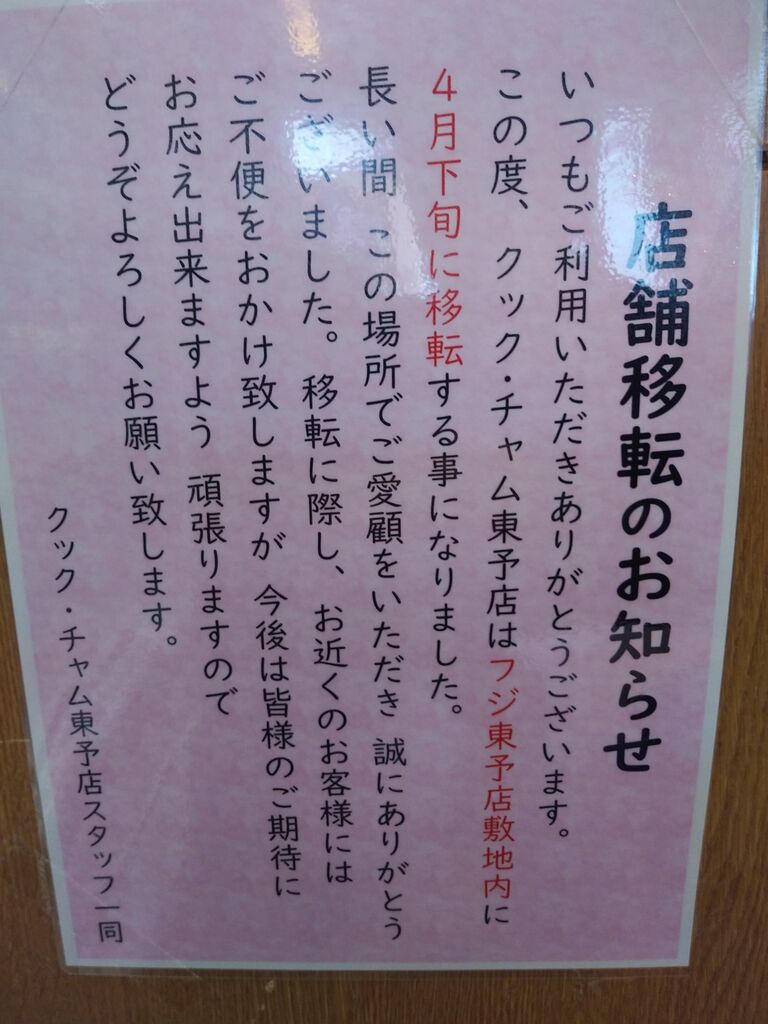 店舗移転のお知らせ
いつもご利用いただきありがとうございます。
この度、クック・チャム東予店はフジ東予店敷地内に
4月下旬に移転する事になりました。
長い間 この場所でご愛顧をいただき 誠にありがとう
ございました。移転に際し、お近くのお客様には
ご不便をおかけ致しますが 今後は皆様のご期待に
お応え出来ますよう 頑張りますので
どうぞよろしくお願い致します。
クック・チャム東予店スタッフ一同